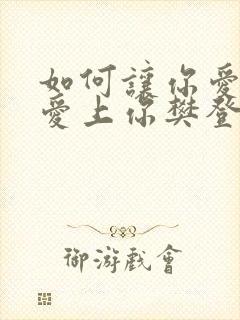 如何讓你愛
愛上你樊登
御游戲會